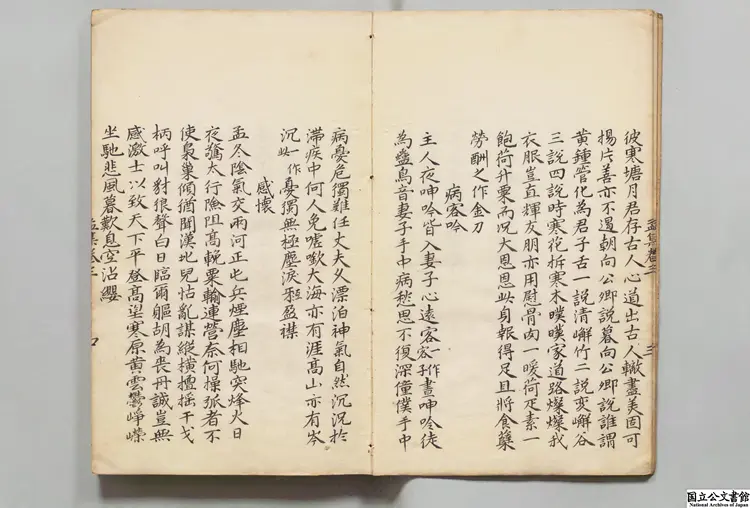 彼寒塘月君存古人心道出古人轍盡美固可
揚片善亦不遏朝向公卿說暮向公卿說誰謂
黃鍾管化為君子舌一說清嶰竹二說变嶰谷
三說四說時寒花拆寒木暯暯家道路燦燦我
衣服豈直輝友朋亦用慰骨肉一暖荷疋素一
飽荷升粟而况大恩恩此身報得足且將食蘗
勞酬之作金刀
病客吟
主人夜呻吟皆入妻子心遠客一作客子晝呻吟徒
為蟲鳥音妻子手中病愁思不復深僮僕手中
孟集卷三
三
病憂危獨難任丈夫久漂泊神氣自然沉況於
滯疾中何人免噓欷大海亦有涯高山亦有岑
沉一作此憂獨無極塵淚盈襟
感懷
孟冬陰氣交兩河正屯兵煙塵相馳突烽火日
夜驚太行險阻高輓粟輸連營奈何操弧者不
使梟巢傾猶聞漢北兒怙亂謀縱橫擅搖干戈
柄呼叫豺狼聲白日臨爾軀胡為喪丹誠豈無
感激士以致天下平登高望寒原黃雲鬱崢嶸
坐馳悲風暮歎息空沾纓
孟集卷三
四
国立公文書館
National Archives of Japan